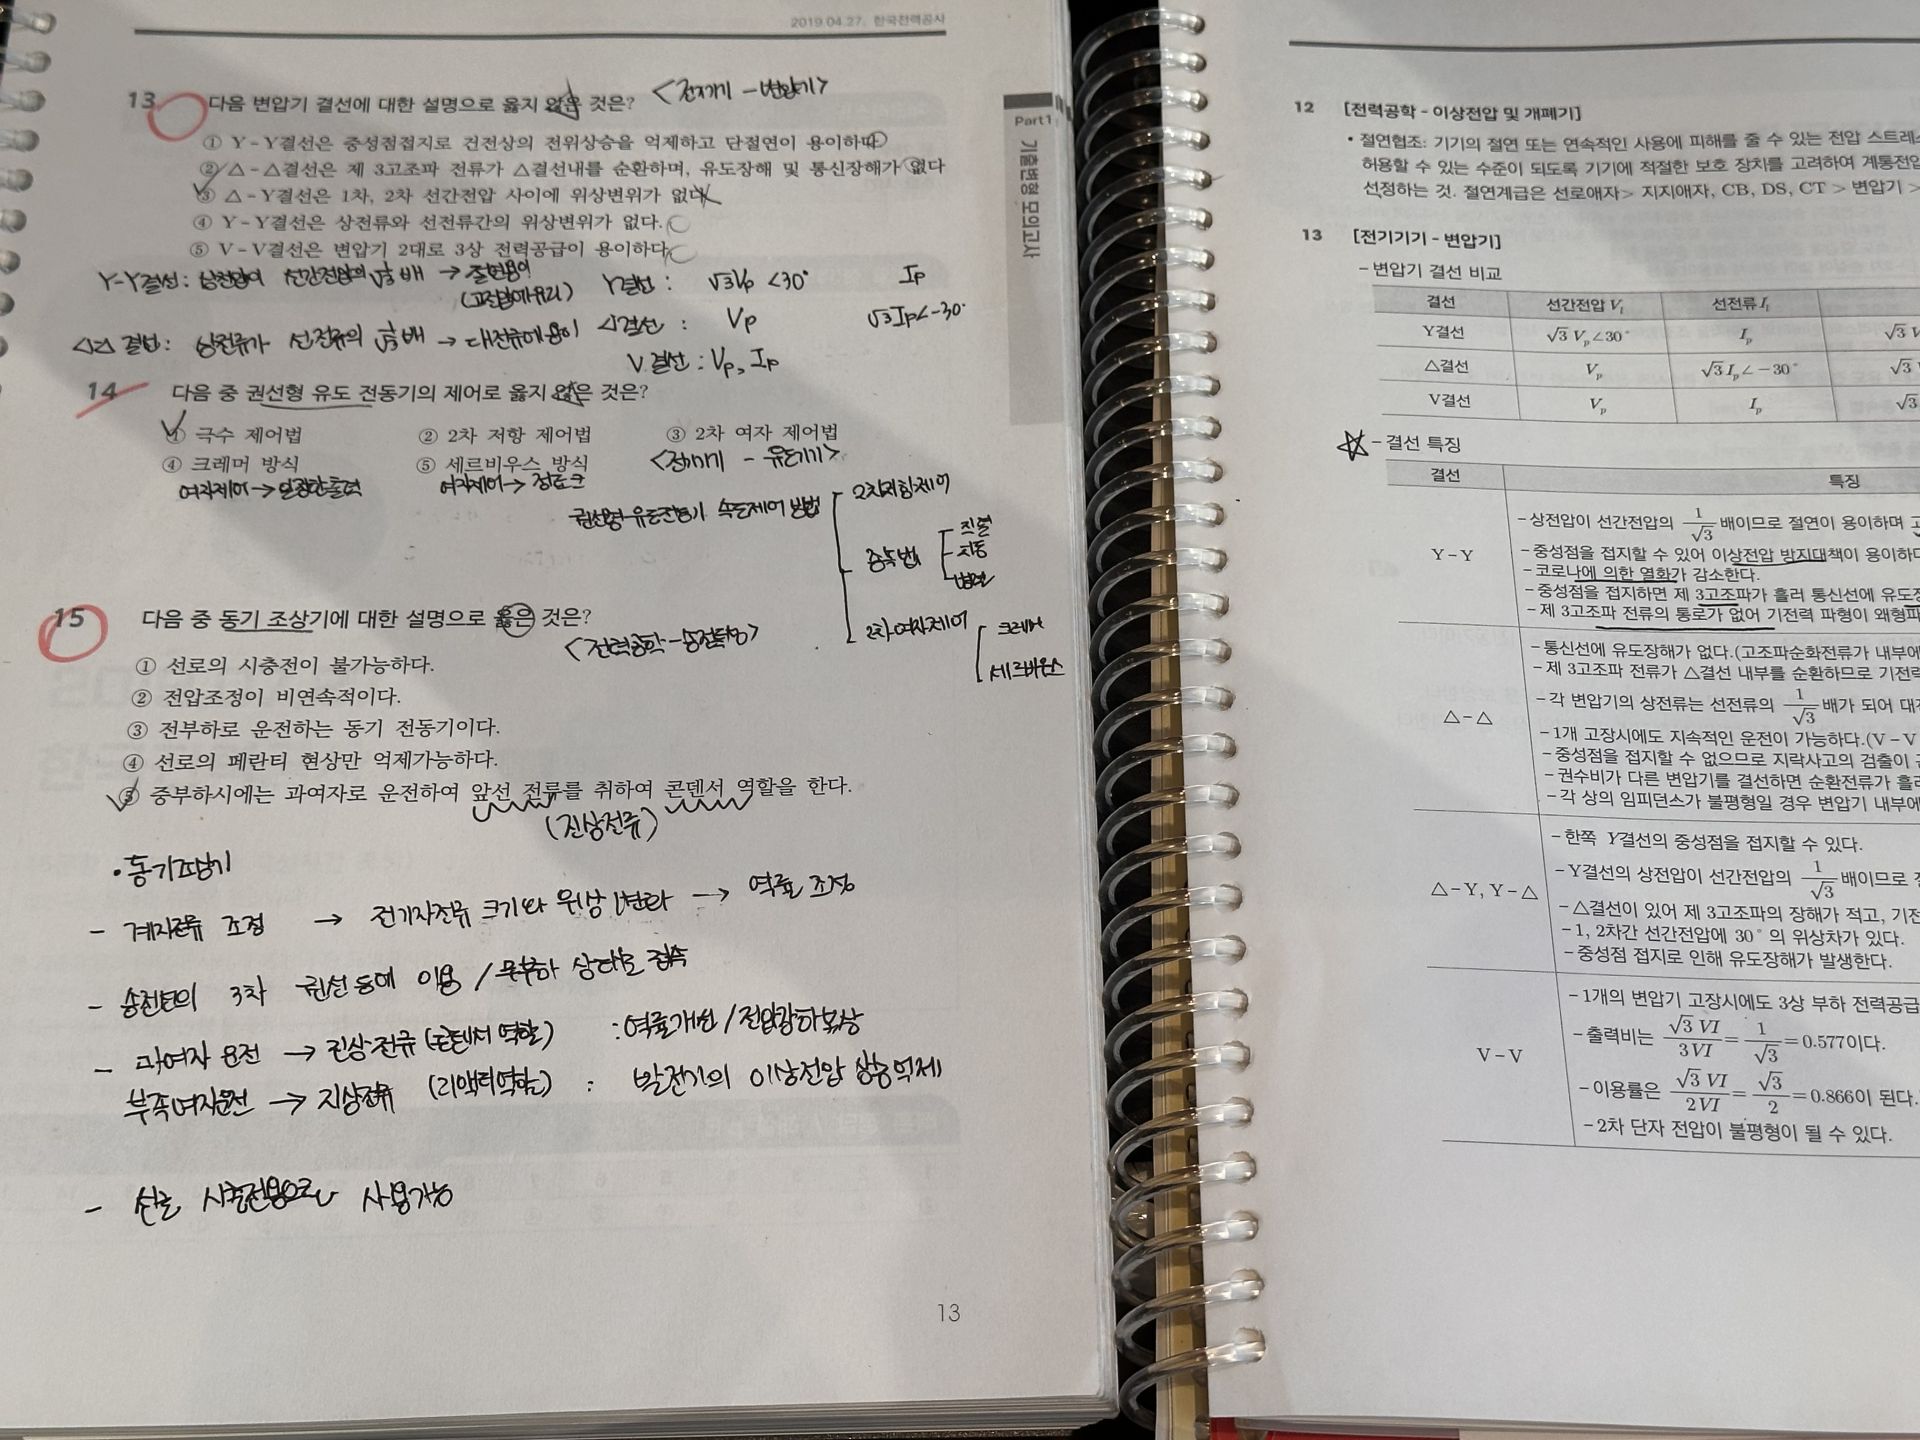 2019.04.27. 한국전력공사
13 다음 변압기 결선에 대한 설명으로 옳지 않은 것은? <전기기기 - 변압기>
① Y-Y결선은 중성점접지로 건전상의 전위상승을 억제하고 단절연이 용이하다
② △-△결선은 제 3고조파 전류가 △결선내를 순환하며, 유도장해 및 통신장해가 없다
③ △-Y결선은 1차, 2차 선간전압 사이에 위상변위가 없다.
④ Y-Y결선은 상전류와 선전류간의 위상변위가 없다.
⑤ V-V결선은 변압기 2대로 3상 전력공급이 용이하다.
Y-Y결선: 상전압이 선간전압의 1/√3배 → 절연용이
(고전압에유리)
△△ 결선: 상전류가 선전류의 1/√3배 → 대전류에용이
Y결선 : √3Vp <30° Ip
△결선 : Vp √3Ip∠-30°
V결선 : Vp, Ip
14 다음 중 권선형 유도 전동기의 제어로 옳지 않은 것은?
① 극수 제어법 ② 2차 저항 제어법 ③ 2차 여자 제어법
④ 크레머 방식 ⑤ 세르비우스 방식 <전기기기 - 유도기>
여자제어→일정한출력 여자제어→정토크
권선형유도전동기 속도제어 방법
2차저항제어
종속법
직렬
차동
병렬
2차여자제어
크레머
세르비우스
15 다음 중 동기 조상기에 대한 설명으로 옳은 것은?
<전력공학-송전특성>
① 선로의 시충전이 불가능하다.
② 전압조정이 비연속적이다.
③ 전부하로 운전하는 동기 전동기이다.
④ 선로의 페란티 현상만 억제가능하다.
⑤ 중부하시에는 과여자로 운전하여 앞선 전류를 취하여 콘덴서 역할을 한다.
(진상전류)
•동기조상기
- 계자전류 조정 → 전기자전류 크기와 위상 변화 → 역률 조정
- 송전단의 3차 권선 등에 이용 / 무부하 상태로 접속
- 과여자 운전 → 진상전류 (콘덴서 역할) : 역률개선 / 전압강하보상
부족여자운전 → 지상전류 (리액터역할) : 발전기의 이상전압 상승 억제
- 선로 시충전용으로 사용가능
13
Part1
기출변형 모의고사
12 [전력공학 - 이상전압 및 개폐기]
• 절연협조: 기기의 절연 또는 연속적인 사용에 피해를 줄 수 있는 전압 스트레스
허용할 수 있는 수준이 되도록 기기에 적절한 보호 장치를 고려하여 계통전압
선정하는 것. 절연계급은 선로애자> 지지애자, CB, DS, CT > 변압기 >
13 [전기기기 - 변압기]
- 변압기 결선 비교
결선 선간전압 Vl 선전류 Il
Y결선 √3 Vp∠30° Ip √3 V
△결선 Vp √3 Ip∠-30° √3
V결선 Vp Ip √3
☆ - 결선 특징
결선 특징
Y-Y
- 상전압이 선간전압의 1/√3 배이므로 절연이 용이하며
- 중성점을 접지할 수 있어 이상전압 방지대책이 용이하다
- 코로나에 의한 열화가 감소한다.
- 중성점을 접지하면 제 3고조파가 흘러 통신선에 유도장
- 제 3고조파 전류의 통로가 없어 기전력 파형이 왜형파
△-△
- 통신선에 유도장해가 없다.(고조파순환전류가 내부에
- 제 3고조파 전류가 △결선 내부를 순환하므로 기전력
- 각 변압기의 상전류는 선전류의 1/√3 배가 되어 대전
- 1개 고장시에도 지속적인 운전이 가능하다.(V-V
- 중성점을 접지할 수 없으므로 지락사고의 검출이
- 권수비가 다른 변압기를 결선하면 순환전류가 흘러
- 각 상의 임피던스가 불평형일 경우 변압기 내부에
△-Y, Y-△
- 한쪽 Y결선의 중성점을 접지할 수 있다.
- Y결선의 상전압이 선간전압의 1/√3 배이므로 절
- △결선이 있어 제 3고조파의 장해가 적고, 기전
- 1, 2차간 선간전압에 30°의 위상차가 있다.
- 중성점 접지로 인해 유도장해가 발생한다.
V-V
- 1개의 변압기 고장시에도 3상 부하 전력공급
- 출력비는 √3 VI/3VI = 1/√3 = 0.577이다.
- 이용률은 √3 VI/2VI = √3/2 = 0.866이 된다.
- 2차 단자 전압이 불평형이 될 수 있다.